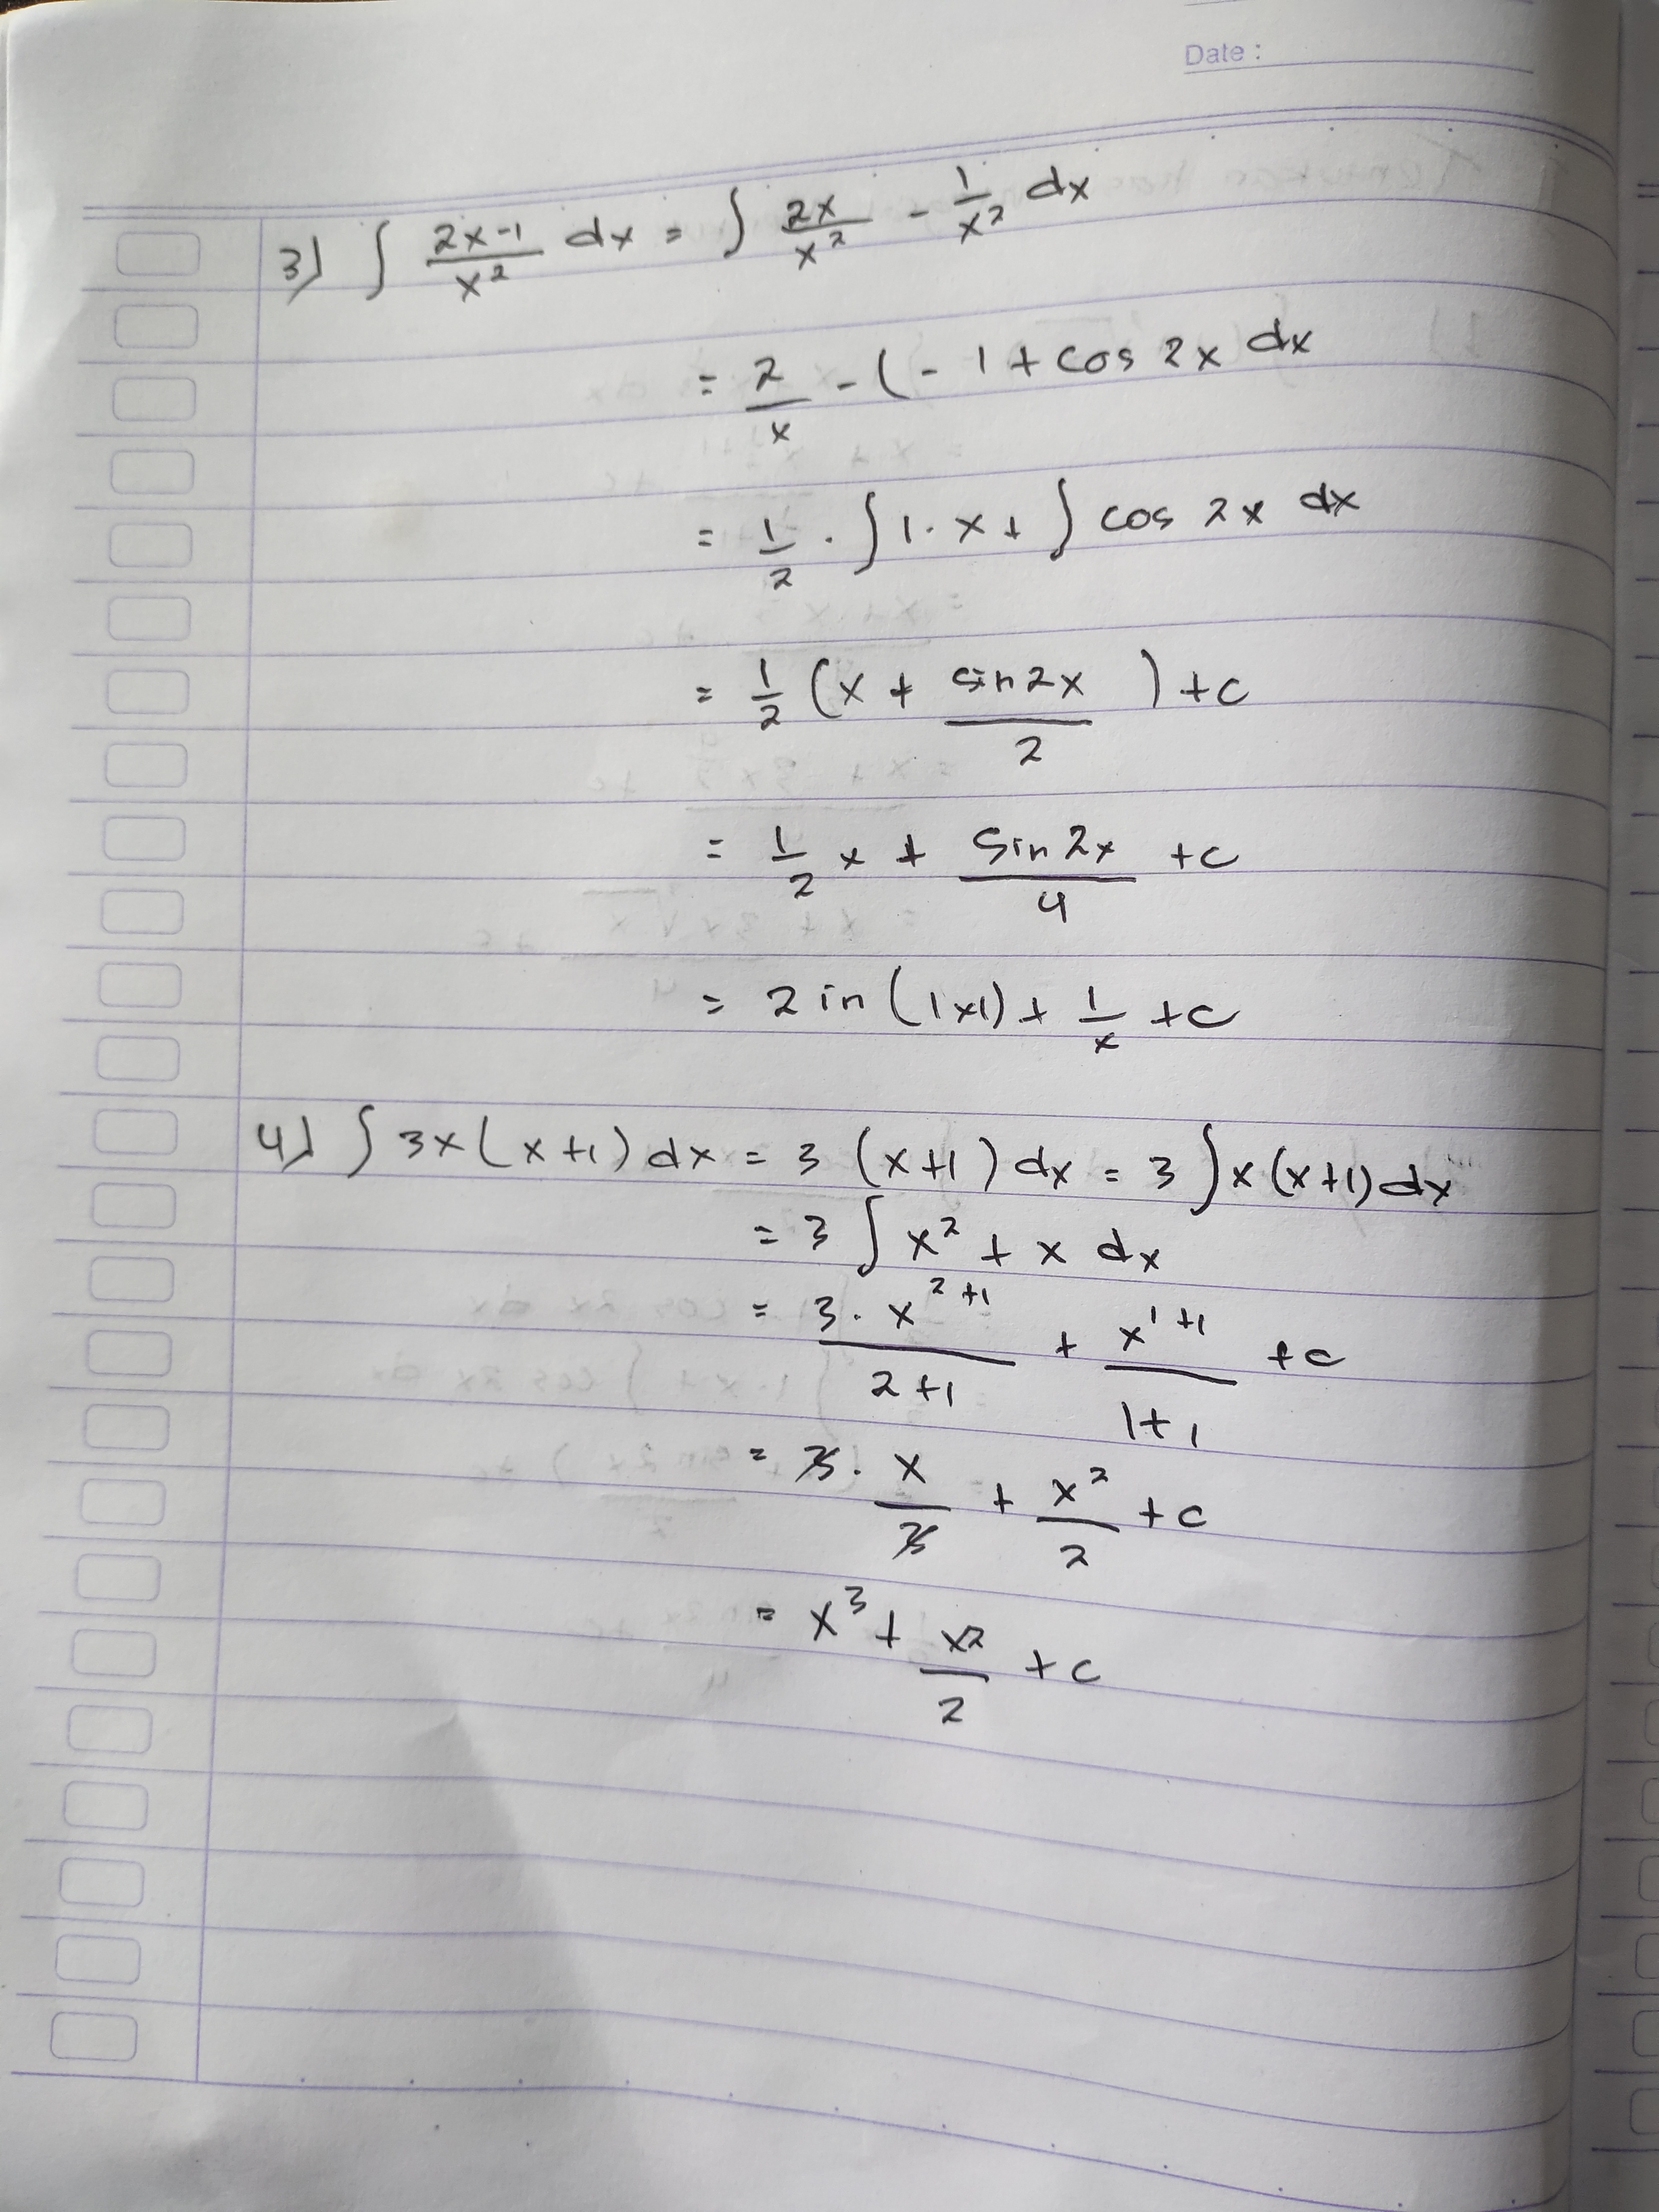 Date :
3) ∫ (2x-1)/x² dx = ∫ 2x/x² - 1/x² dx
= 2/x - (- 1 + cos 2x dx
= 1/2 . ∫ 1. x + ∫ cos 2x dx
= 1/2 (x + sin2x/2 ) + c
= 1/2 x + Sin 2x/4 + c
= 2 in (1x1) + 1/x + c
4) ∫ 3x (x+1) dx = 3 (x+1) dx = 3 ∫ x (x+1) dx
= 3 ∫ x² + x dx
= 3. x²⁺¹/2+1 + x¹⁺¹/1+1 + c
= 3. x/3 + x²/2 + c
= x³ + x2/2 + c